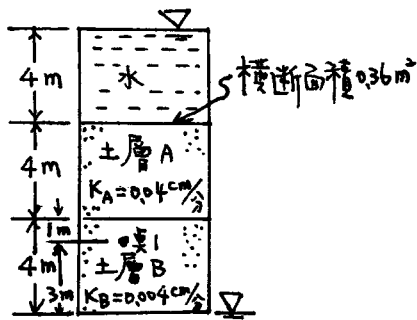 4m
水
横断面積0.36m²
4m
土層A
K_A=0.04cm/分
1m
點1
4m
土層B
3m
K_B=0.004cm/分